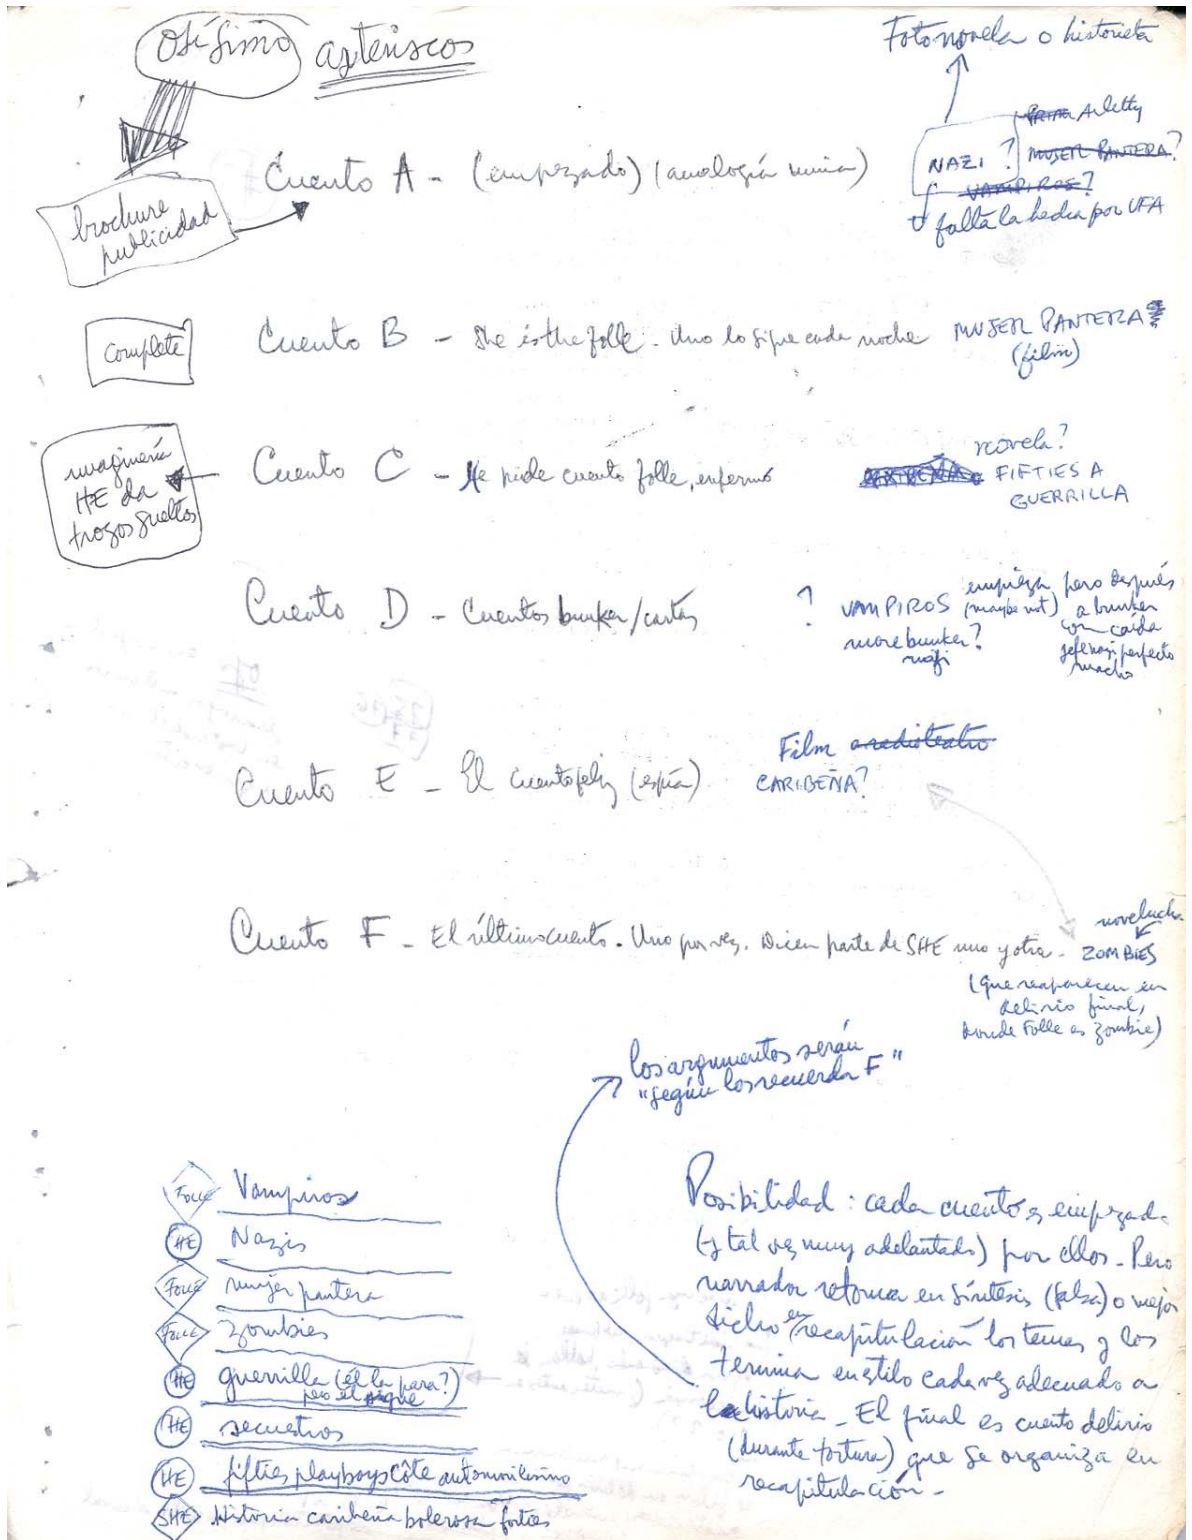 asteriscos
Fotonovela o historieta
Arletty
NAZI ? MUJER PANTERA?
VAMPIROS?
falta la hecha por UFA
Cuento A - (empezado) (analogía
brochure
publicidad
complete
Cuento B - She is the folle. Uno lo sigue cada noche MUJER PANTERA?
(film)
imaginería
HE da
trozos sueltos
Cuento C - He pide cuento folle, enfermó
novela?
FIFTIES A
GUERRILLA
Cuento D - Cuentos bunker/cartas
? VAMPIROS
more bunker?
empieza pero después
(maybe not) a bunker
con caída
jefe nazi perfecto
macho
Cuento E - El cuento feliz (espía)
Film o radioteatro
CARIBEÑA?
Cuento F - El último cuento. Uno por vez. Dicen parte de SHE uno y otra.
ZOMBIES
(que reaparecen en
delirio final,
donde Folle es zombie)
los argumentos serán
"según los recuerda F"
FOLLE Vampiros
HE Nazis
FOLLE mujer pantera
FOLLE zombies
HE guerrilla (él la para?)
pero él sigue
HE secuestros
HE fifties playboys côte automovilismo
SHE Historia caribeña bolerosa forties
Posibilidad: cada cuento es empezado
(y tal vez muy adelantado) por ellos. Pero
narrador retoma en síntesis (falsa) o mejor
dicho en recapitulación los temas y los
termina en estilo cada vez adecuado a
la historia - El final es cuento delirio
(durante tortura) que se organiza en
recapitulación -